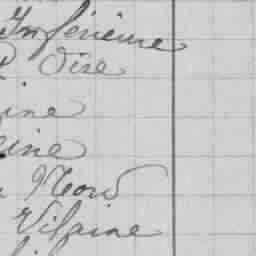 Inférieure
Oise
ine
eine
Nord
Vilaine